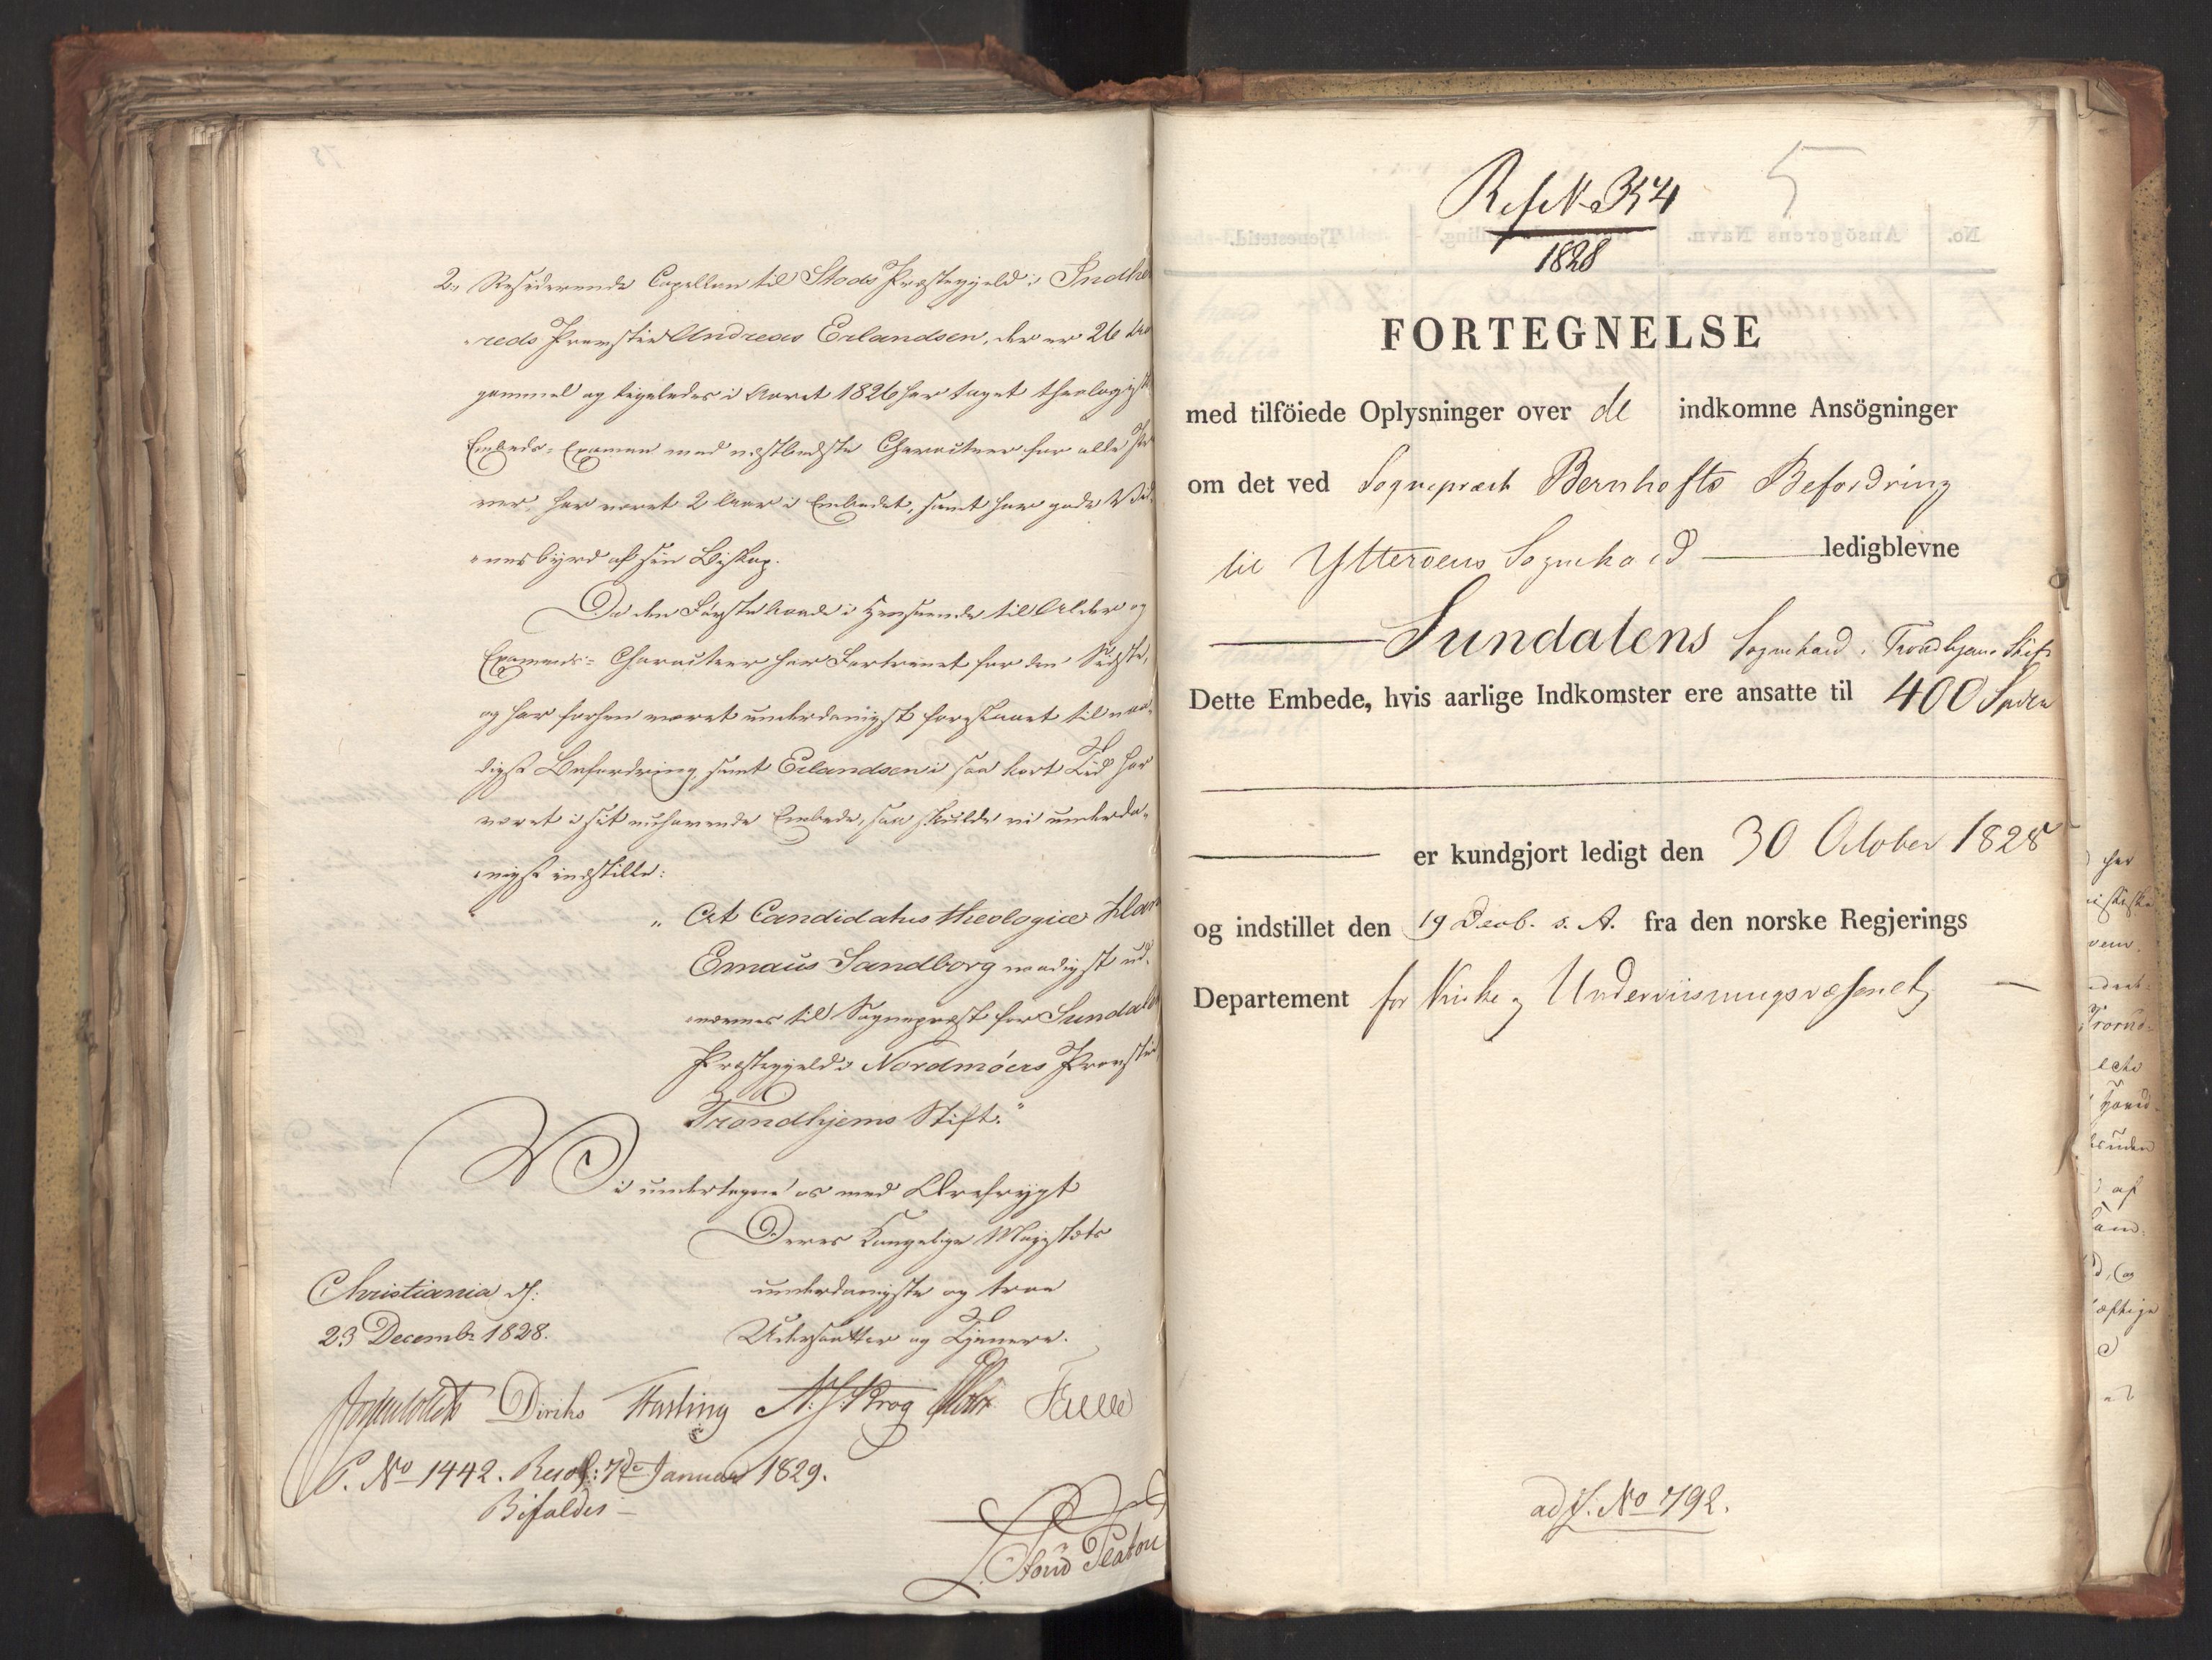 2, Residerende Capellan til Stods Præstegjeld i Indhe
reds Provstie Andreas Erlandsen, der er 26 Aar
gammel og ligeledes i Aaret 1826 har taget theologisk
Embeds-Examen med næstbedste Characteer for alle Prø
ver, har været 2 Aar i Embedet, samt har gode Vid
nesbyrd af sin Biskop.
Da den Førstnævnte i Henseende til Alder og
Examens-Characteer har Fortrinet for den Sidste,
og har forhen været underdanigst foreslaaet til naa-
digst Befordring, samt Erlandsen i saa kort Tid har
været i sit nuhavende Embede, saa skulde vi underda-
nigst indstille:
„ At Candidatus theologiæ
Emaus Sandborg naadigst ud-
nævnes til Sognepræst for Sundals
Præstegjeld i Nordmöers Provstie
Trondhjems Stift."
Vi undertegne os med Ærefrygt
Deres Kongelige Majestæts
Christiania d:
underdanigste og troe
23 Decembr 1828.
Undersaatter og Tjenere.
Diriks N. J. Krog Falle
P. No 1442. Resol: 7de Januar 1829.
Bifaldes –
5
1828
FORTEGNELSE
med tilföiede Oplysninger over de indkomne Ansögninger
om det ved Sognepræst Bernhofts Befordring
til Ytteröens Sognekald ledigblevne
Sundalens Sognekald i Trondhjems Stift
Dette Embede, hvis aarlige Indkomster ere ansatte til 400 Spdlr
er kundgjort ledigt den 30 October 1828
og indstillet den 19 Decb. s. A. fra den norske Regjerings
Departement for Kirke og Underviisningsvæsenet
ad J. No 792.